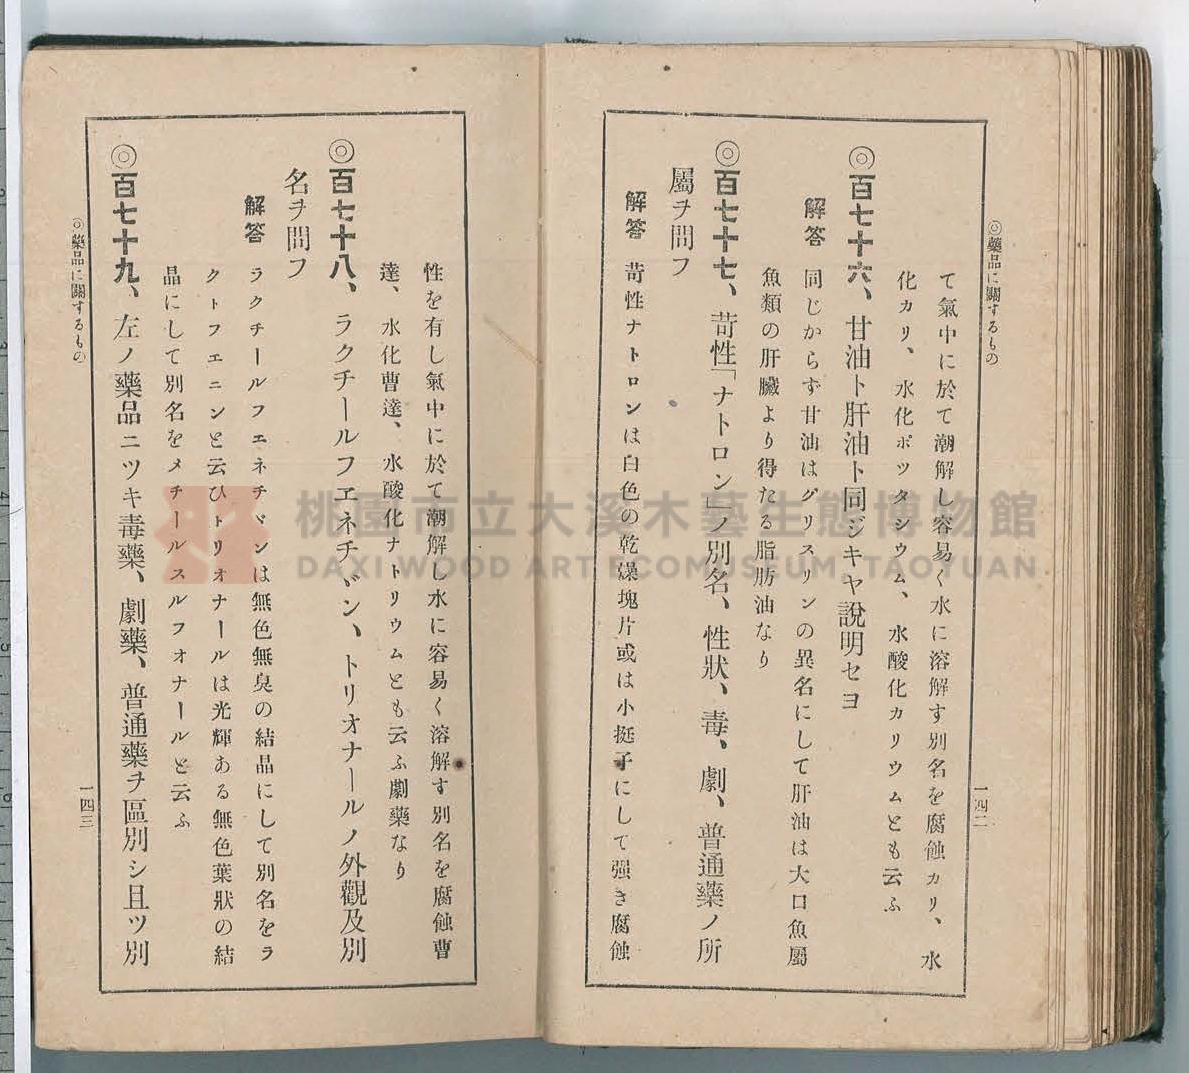 ◎藥品に關するもの
一四二
て氣中に於て潮解し容易く水に溶解す別名を腐蝕カリ、水
化カリ、水化ポツタシウム、水酸化カリウムとも云ふ
◎百七十六、甘油ト肝油ト同ジキヤ說明セヨ
解答 同じからず甘油はグリスリンの異名にして肝油は大口魚屬
魚類の肝臟より得たる脂肪油なり
◎百七十七、苛性「ナトロン」ノ別名、性狀、毒、劇、普通藥ノ所
屬ヲ問フ
解答 苛性ナトロンは白色の乾燥塊片或は小挺子にして强き腐蝕
性を有し氣中に於て潮解し水に容易く溶解す別名を腐蝕曹
達、水化曹達、水酸化ナトリウムとも云ふ劇藥なり
◎百七十八、ラクチールフエネチヾン、トリオナールノ外觀及別
名ヲ問フ
解答 ラクチールフエネチヾンは無色無臭の結晶にして別名をラ
クトフエニンと云ひトリオナールは光輝ある無色葉狀の結
晶にして別名をメチールスルフオナールと云ふ
◎百七十九、左ノ藥品ニツキ毒藥、劇藥、普通藥ヲ區別シ且ツ別
◎藥品に關するもの
一四三
桃園市立大溪木藝生態博物館
DAXI WOOD ART ECOMUSEUM, TAOYUAN